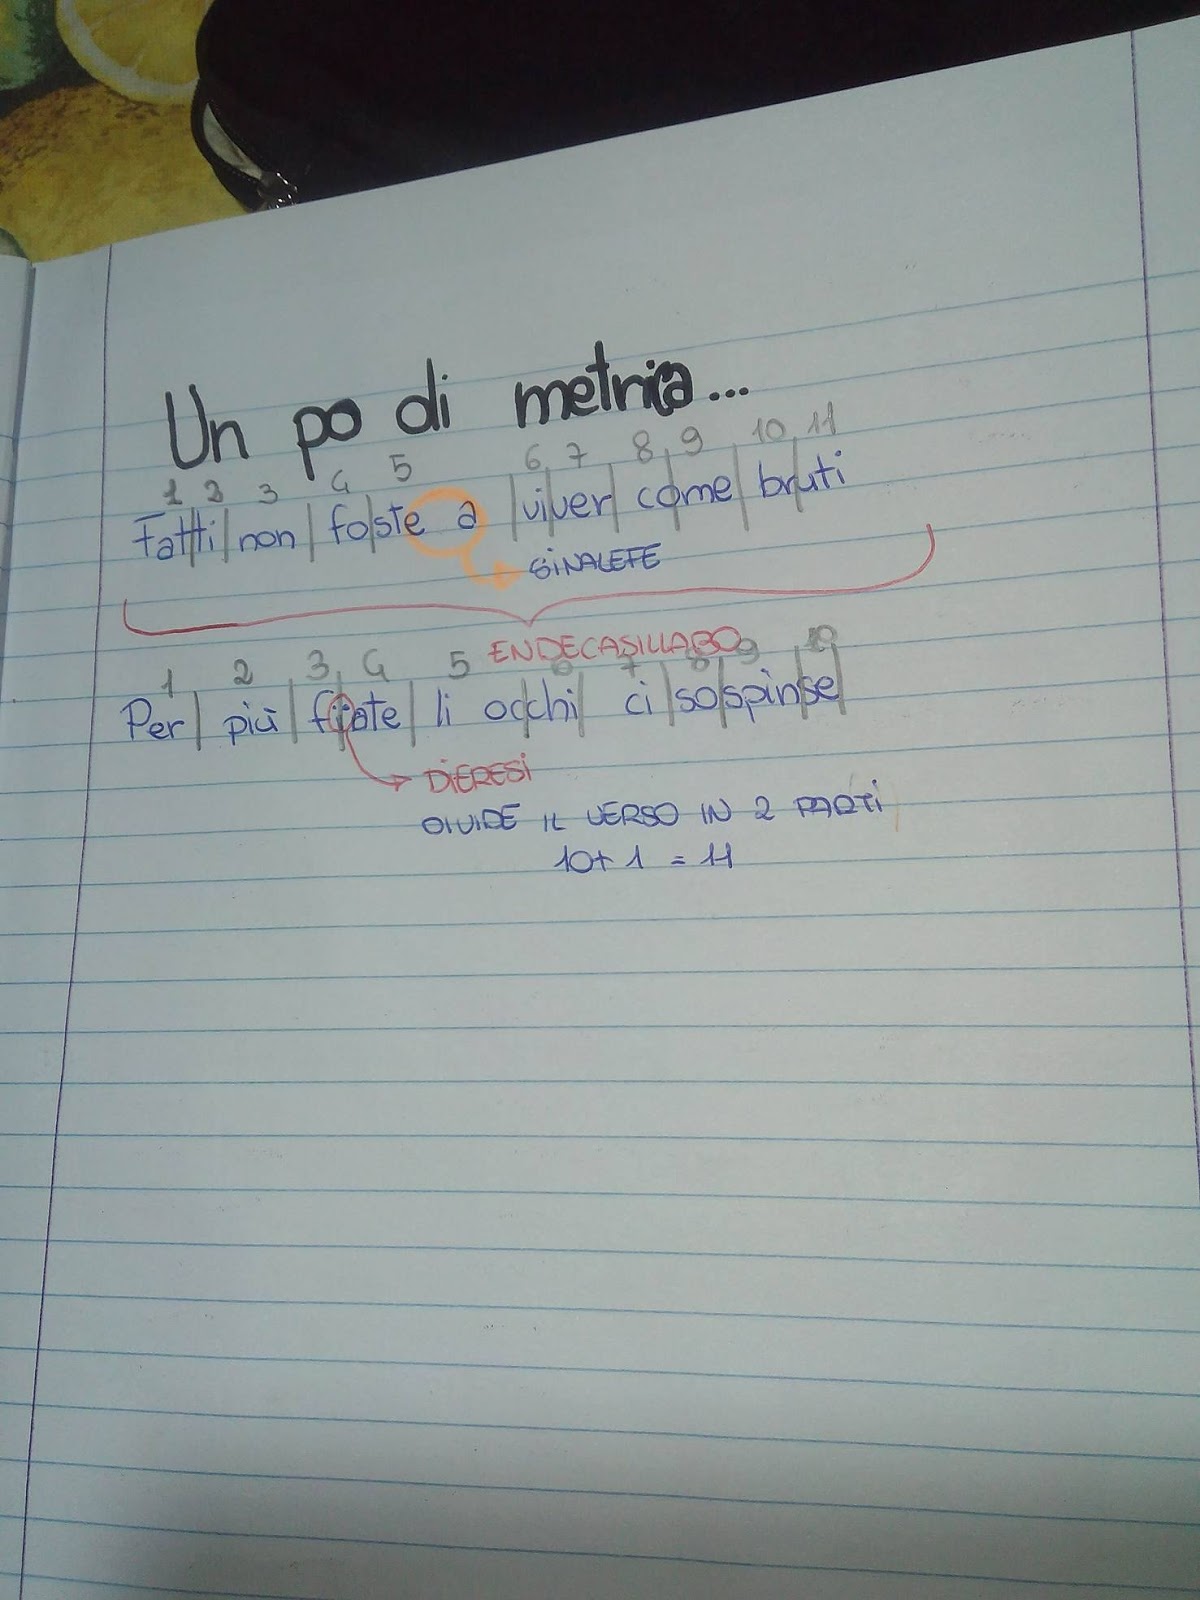 Un po di metrica...
1 2 3 4 5 6 7 8 9 10 11
Fat|ti| non | fo|ste a | vi|ver| co|me| bru|ti
SINALEFE
ENDECASILLABO
1 2 3 4 5 6 7 8 9 10
Per| più | fi|ate | li oc|chi| ci |so|spin|se|
DIERESI
DIVIDE IL VERSO IN 2 PARTI
10+1 = 11